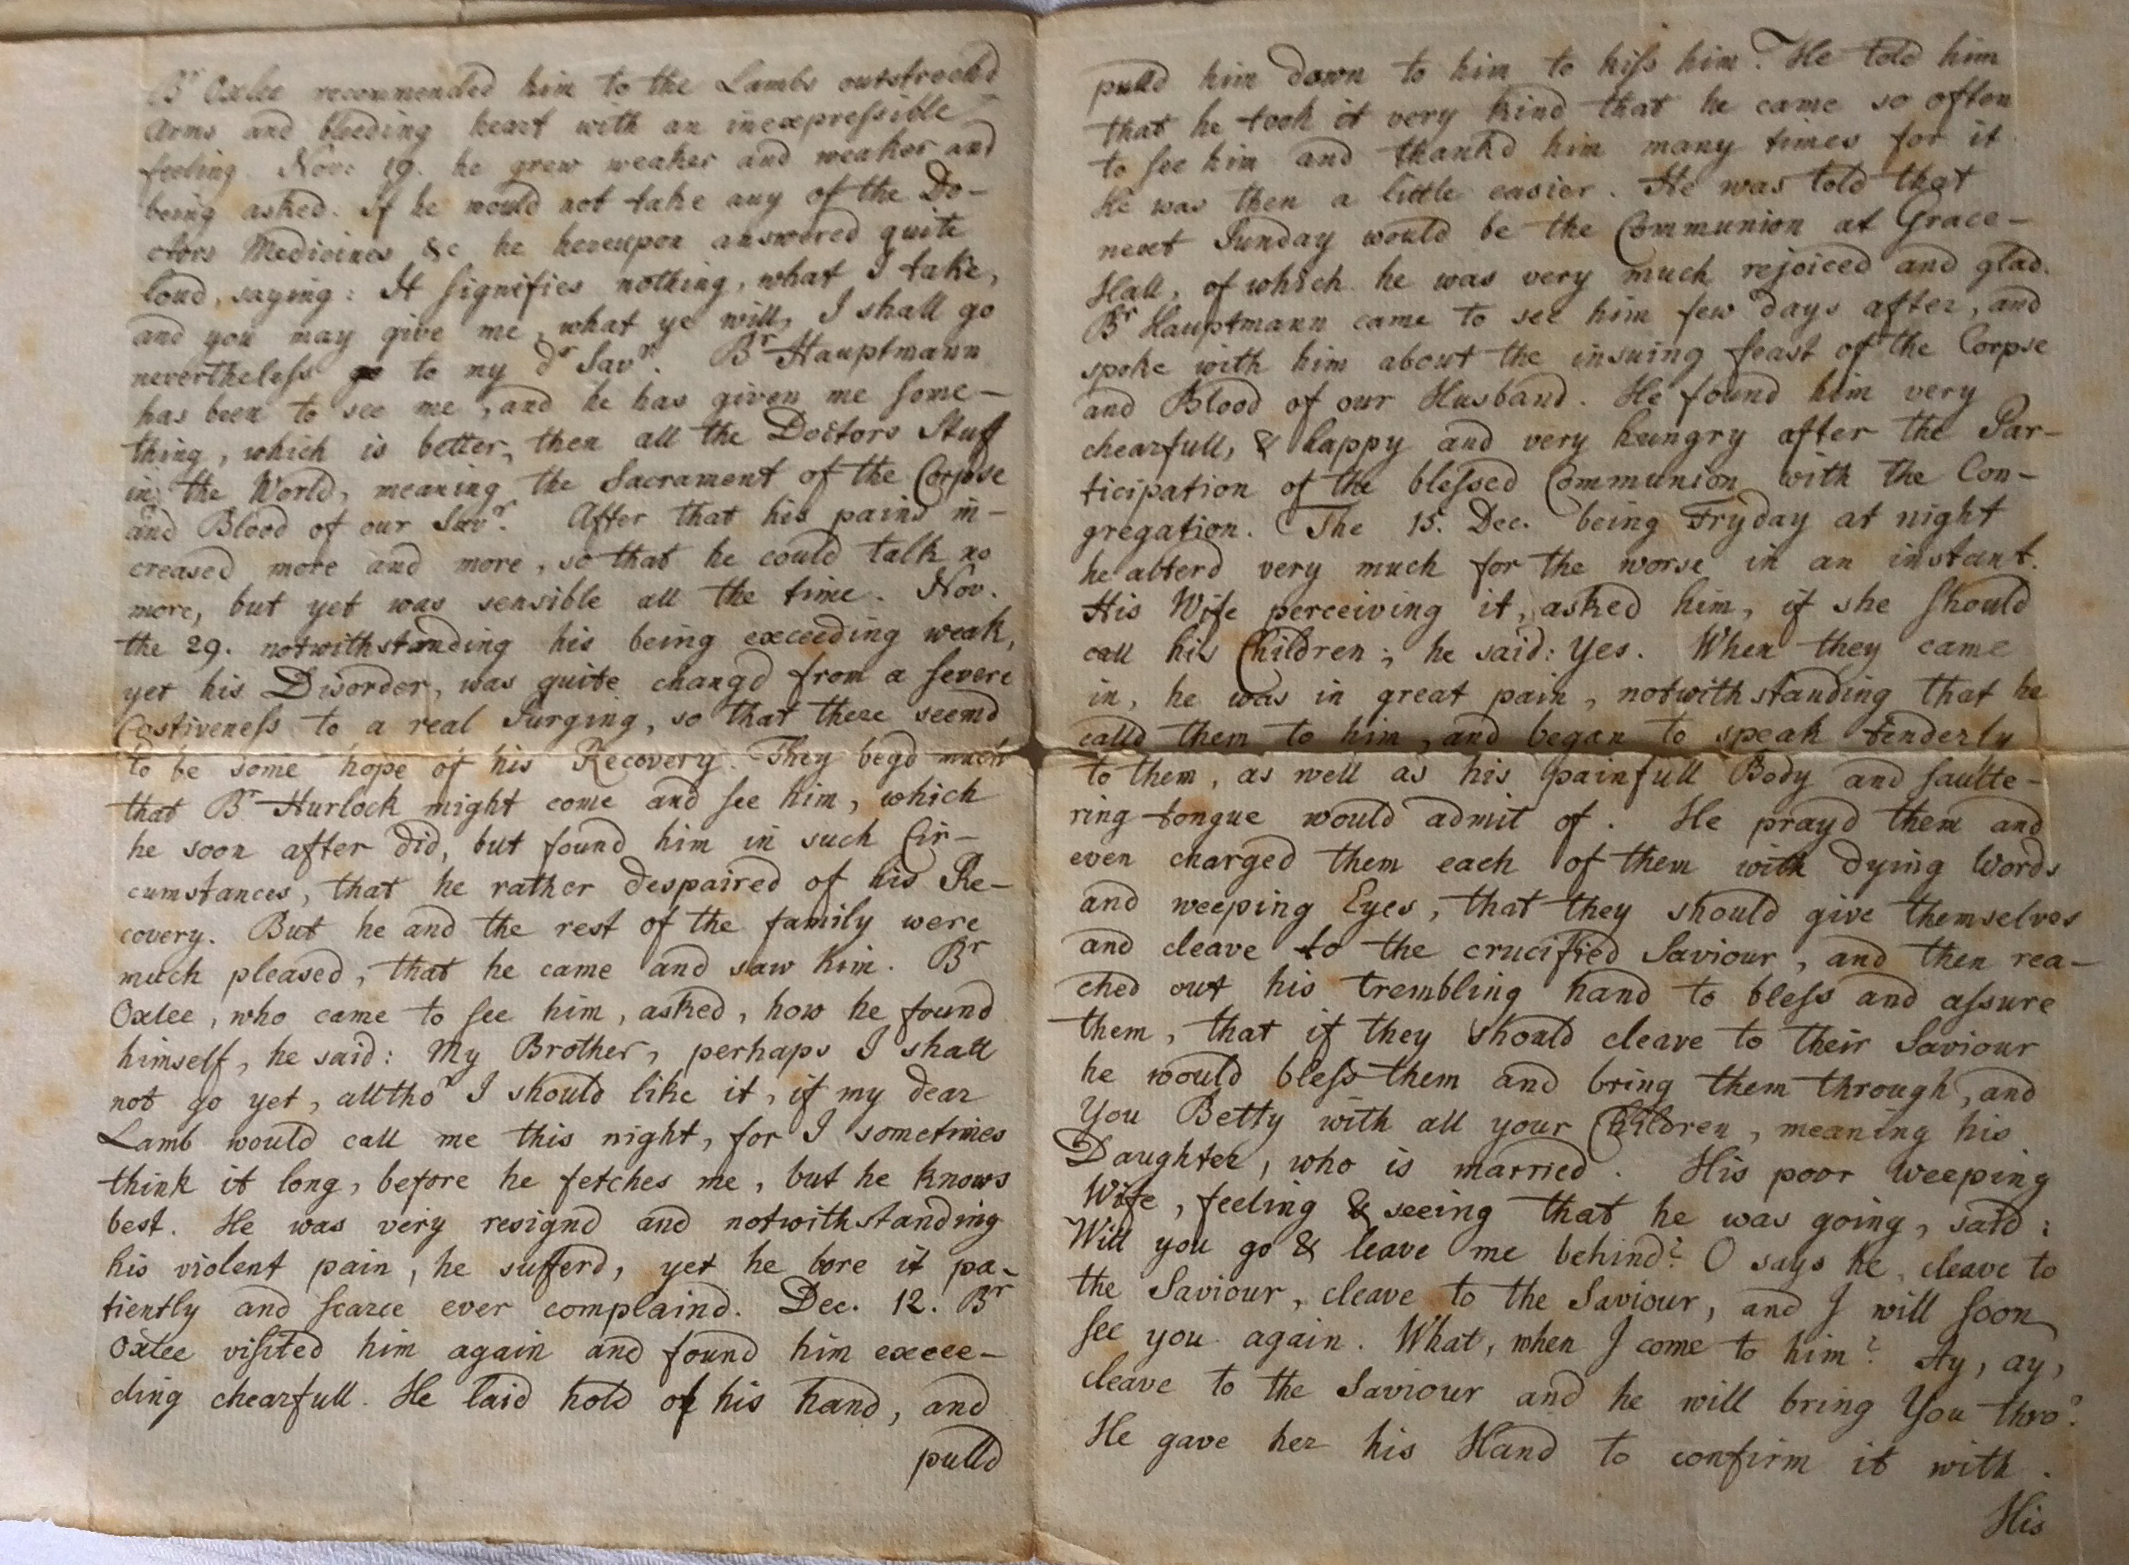 Br Oxlee recommended him to the Lambs outstreched
Arms and bleeding heart with an inexpressible
feeling. Nov: 19. he grew weaker and weaker and
being asked. If he would not take any of the Do-
ctors Medicines &c he hereupon answered quite
loud, saying: It signifies nothing, what I take,
and you may give me, what ye will, I shall go
nevertheless to my dr Savr. Br Hauptmann
has been to see me, and he has given me some-
thing, which is better, then all the Doctors Stuff
in the World, meaning the Sacrament of the Corpse
and Blood of our Savr. After that his pains in-
creased more and more, so that he could talk no
more, but yet was sensible all the time. Nov.
the 29. notwithstanding his being exceeding weak,
yet his Disorder, was quite changd from a severe
Costiveness to a real Purging, so that there seemd
to be some hope of his Recovery. They begd much
that Br Hurlock might come and see him, which
he soon after did, but found him in such Cir-
cumstances, that he rather despaired of his Re-
covery. But he and the rest of the family were
much pleased, that he came and saw him. Br
Oxlee, who came to see him, asked, how he found
himself, he said: My Brother, perhaps I shall
not go yet, alltho' I should like it, if my dear
Lamb would call me this night, for I sometimes
think it long, before he fetches me, but he knows
best. He was very resignd and notwithstanding
his violent pain, he sufferd, yet he bore it pa-
tiently and scarce ever complaind. Dec. 12. Br
Oxlee visited him again and found him excee-
ding chearfull. He laid hold of his hand, and
pulld
pulld him down to him to kiss him. He told him
that he took it very kind that he came so often
to see him and thankd him many times for it
He was then a little easier. He was told that
next Sunday would be the Communion at Grace-
Hall, of which he was very much rejoiced and glad.
Br Hauptmann came to see him few days after, and
spoke with him about the insuing feast of the Corpse
and Blood of our Husband. He found him very
chearfull, & happy and very hungry after the Par-
ticipation of the blessed Communion with the Con-
gregation. The 15. Dec. being Fryday at night
he alterd very much for the worse in an instant.
His Wife perceiving it, asked him, if she should
call his Children; he said: Yes. When they came
in, he was in great pain, notwithstanding that he
calld them to him, and began to speak tenderly
to them, as well as his painfull Body and faulte-
ring tongue would admit of. He prayd them and
even charged them each of them with dying Words
and weeping Eyes, that they should give themselves
and cleave to the crucified Saviour, and then rea-
ched out his trembling hand to bless and assure
them, that if they should cleave to their Saviour
he would bless them and bring them through, and
You Betty with all your Children, meaning his
Daughter, who is married. His poor weeping
Wife, feeling & seeing that he was going, said:
Will you go & leave me behind? O says he, cleave to
the Saviour, cleave to the Saviour, and I will soon
see you again. What, when I come to him? Ay, ay,
cleave to the Saviour and he will bring You thro'.
He gave her his Hand to confirm it with.
His